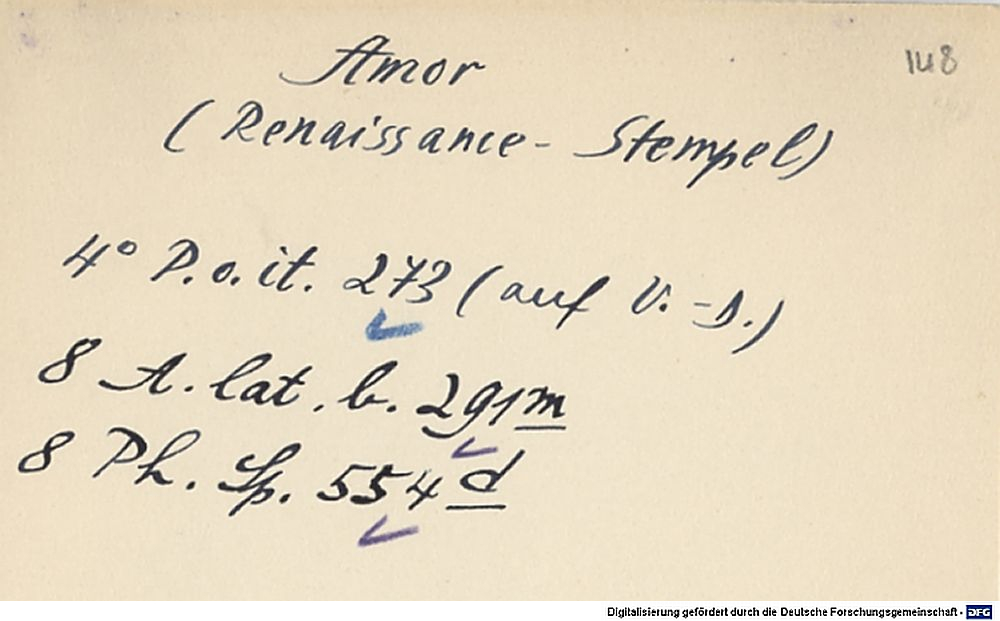 148
Amor
(Renaissance-Stempel)
4° P.o.it. 273 (auf V.-D.)
8 A.lat.b. 291m
8 Ph. Sp. 554d
Digitalisierung gefördert durch die Deutsche Forschungsgemeinschaft - DFG